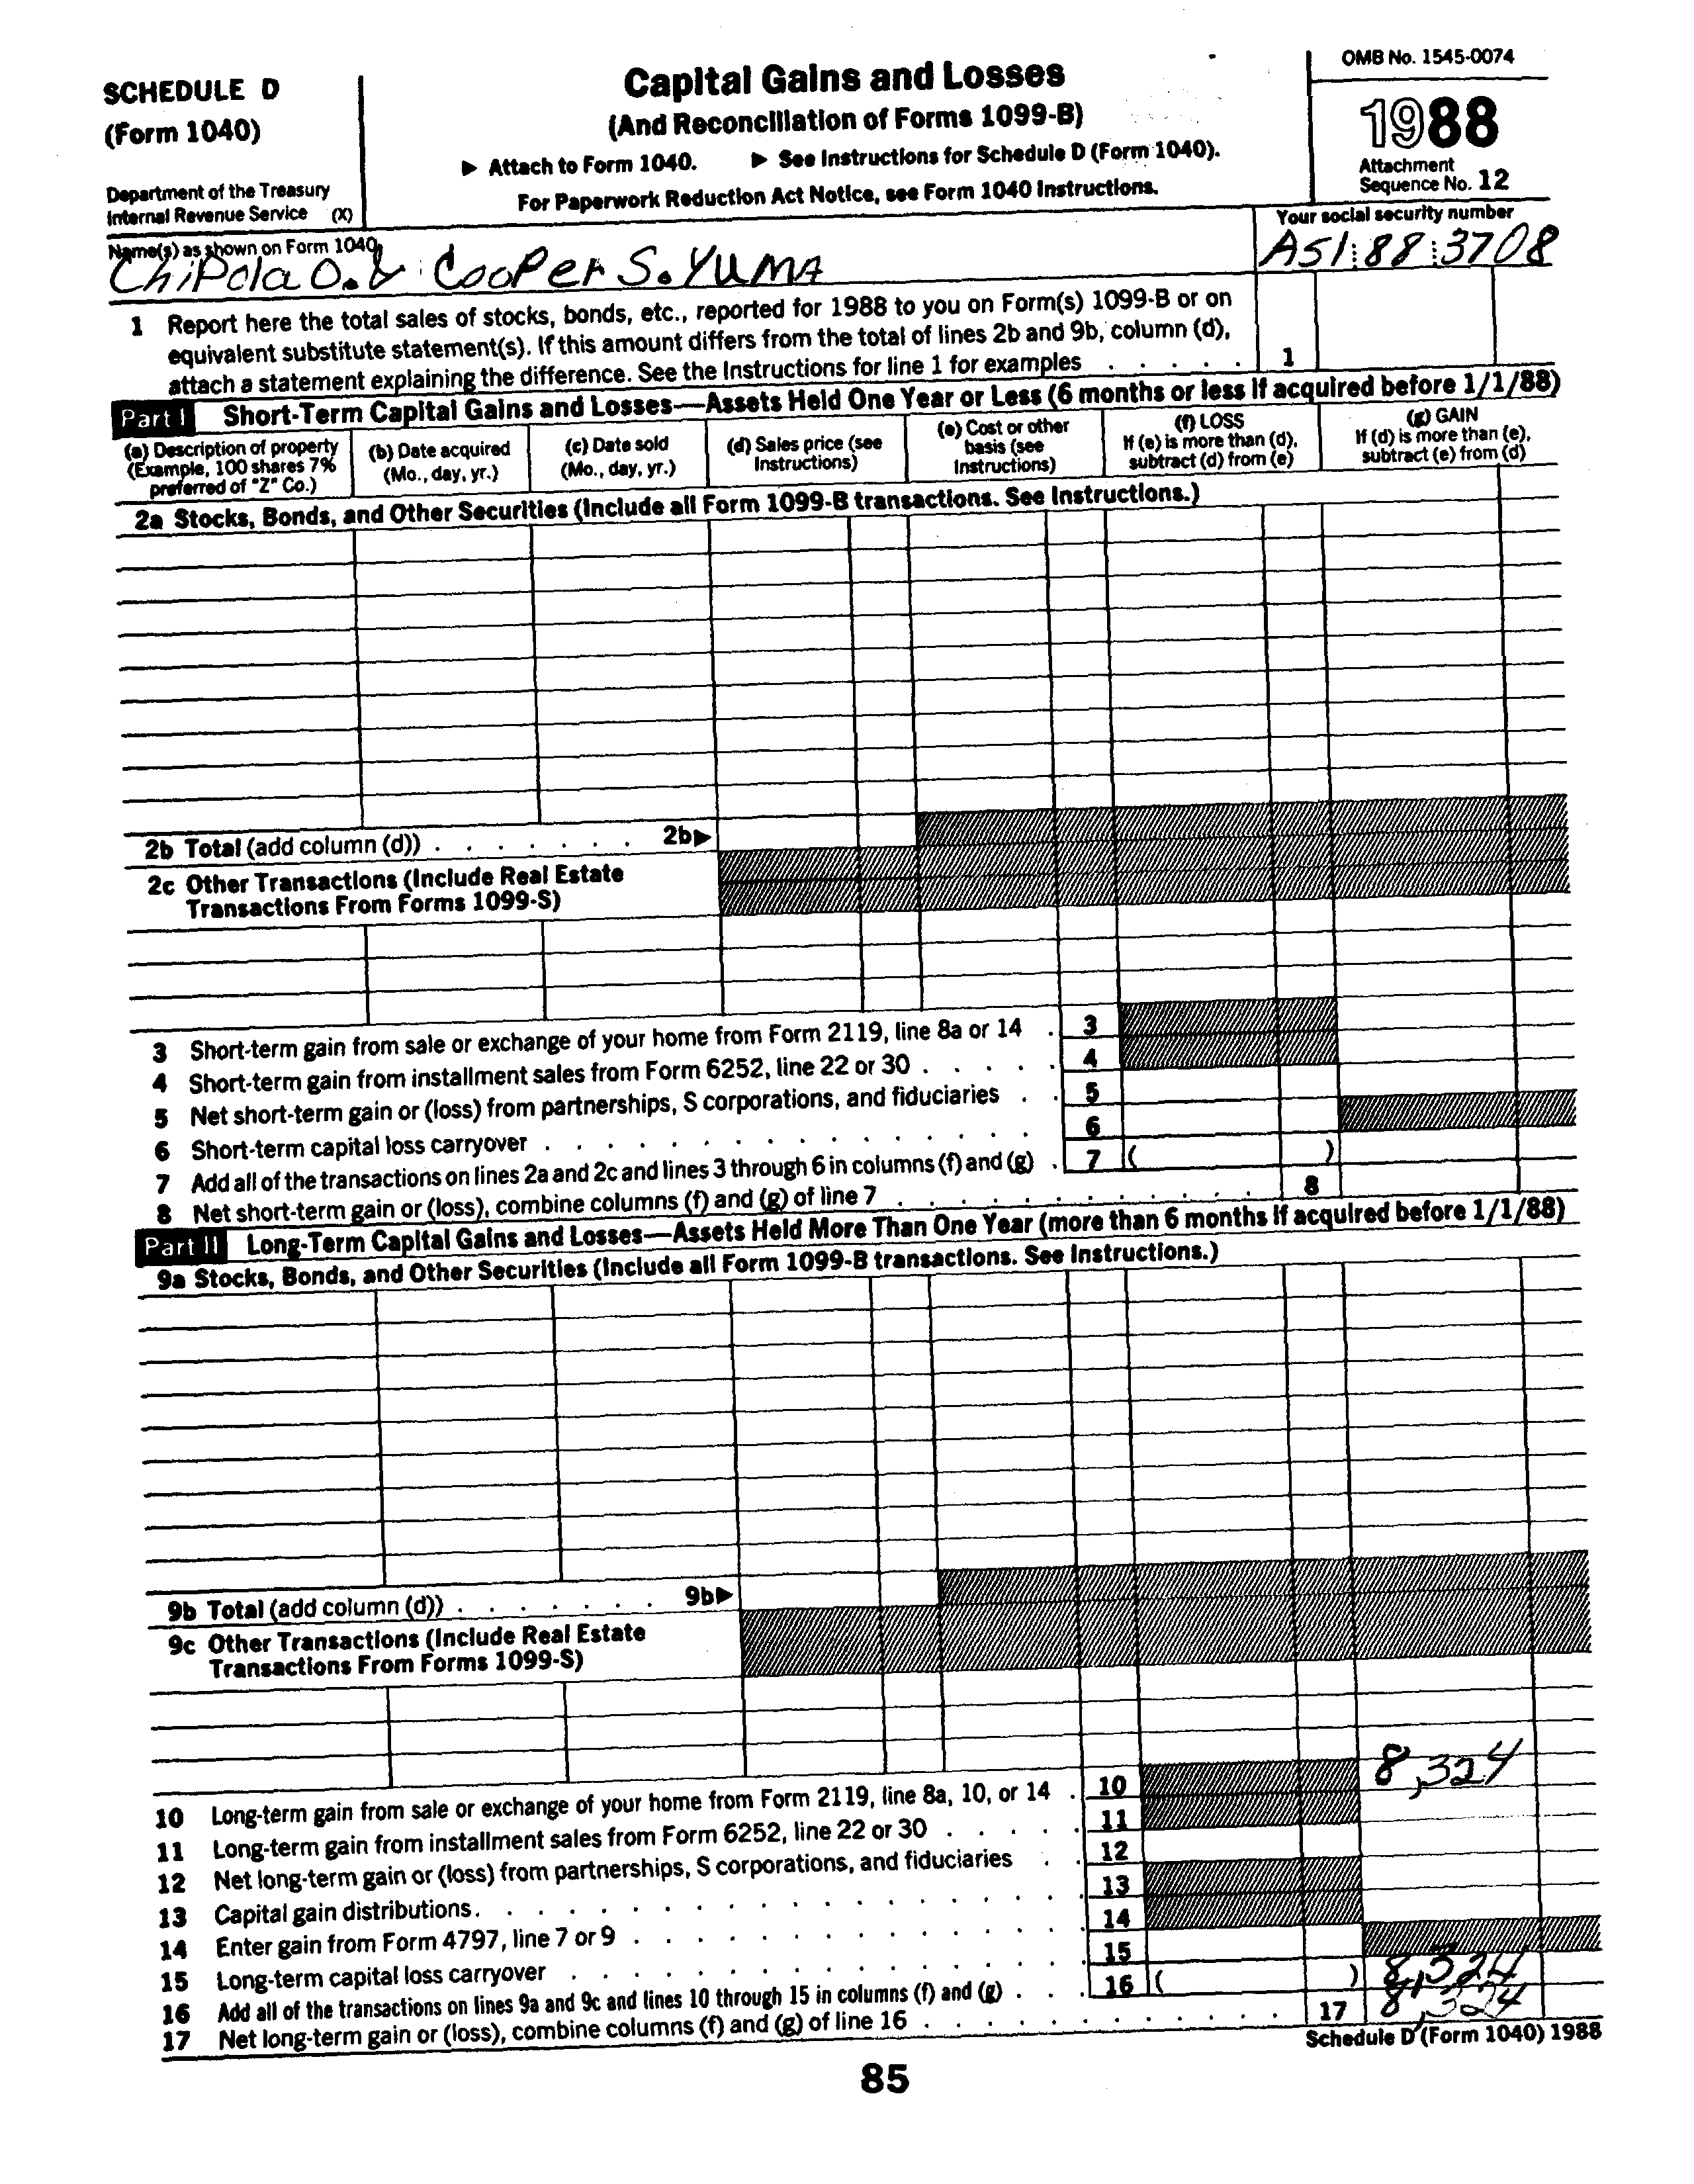 SCHEDULE D
(Form 1040)
Department of the Treasury
Internal Revenue Service (X)
Capital Gains and Losses
(And Reconciliation of Forms 1099-B)
▶ Attach to Form 1040. ▶ See Instructions for Schedule D (Form 1040).
For Paperwork Reduction Act Notice, see Form 1040 Instructions.
OMB No. 1545-0074
1988
Attachment
Sequence No. 12
Name(s) as shown on Form 1040
Chipola O. & Cooper S. YUMA
Your social security number
A51:88:3708
1 Report here the total sales of stocks, bonds, etc., reported for 1988 to you on Form(s) 1099-B or on
equivalent substitute statement(s). If this amount differs from the total of lines 2b and 9b, column (d),
attach a statement explaining the difference. See the Instructions for line 1 for examples . . . . . 1
Part I Short-Term Capital Gains and Losses—Assets Held One Year or Less (6 months or less if acquired before 1/1/88)
(a) Description of property
(Example, 100 shares 7%
preferred of "Z" Co.)
(b) Date acquired
(Mo., day, yr.)
(c) Date sold
(Mo., day, yr.)
(d) Sales price (see
Instructions)
(e) Cost or other
basis (see
Instructions)
(f) LOSS
If (e) is more than (d),
subtract (d) from (e)
(g) GAIN
If (d) is more than (e),
subtract (e) from (d)
2a Stocks, Bonds, and Other Securities (Include all Form 1099-B transactions. See Instructions.)
2b Total (add column (d)) . . . . . . . 2b▶
2c Other Transactions (Include Real Estate
Transactions From Forms 1099-S)
3 Short-term gain from sale or exchange of your home from Form 2119, line 8a or 14 . 3
4 Short-term gain from installment sales from Form 6252, line 22 or 30 . . . . . 4
5 Net short-term gain or (loss) from partnerships, S corporations, and fiduciaries . . 5
6 Short-term capital loss carryover . . . . . . . . . . . . . . . 6
7 Add all of the transactions on lines 2a and 2c and lines 3 through 6 in columns (f) and (g) . 7 ( )
8 Net short-term gain or (loss), combine columns (f) and (g) of line 7 . . . . . . . . . . . . 8
Part II Long-Term Capital Gains and Losses—Assets Held More Than One Year (more than 6 months if acquired before 1/1/88)
9a Stocks, Bonds, and Other Securities (Include all Form 1099-B transactions. See Instructions.)
9b Total (add column (d)) . . . . . . . 9b▶
9c Other Transactions (Include Real Estate
Transactions From Forms 1099-S)
10 Long-term gain from sale or exchange of your home from Form 2119, line 8a, 10, or 14 . 10 8,324
11 Long-term gain from installment sales from Form 6252, line 22 or 30 . . . . . 11
12 Net long-term gain or (loss) from partnerships, S corporations, and fiduciaries . . 12
13 Capital gain distributions. . . . . . . . . . . . . . . . . 13
14 Enter gain from Form 4797, line 7 or 9 . . . . . . . . . . . . . 14
15 Long-term capital loss carryover . . . . . . . . . . . . . . . 15
16 Add all of the transactions on lines 9a and 9c and lines 10 through 15 in columns (f) and (g) . . . 16 ( ) 8,324
17 Net long-term gain or (loss), combine columns (f) and (g) of line 16 . . . . . . . . . . . . 17 8,324
Schedule D (Form 1040) 1988
85